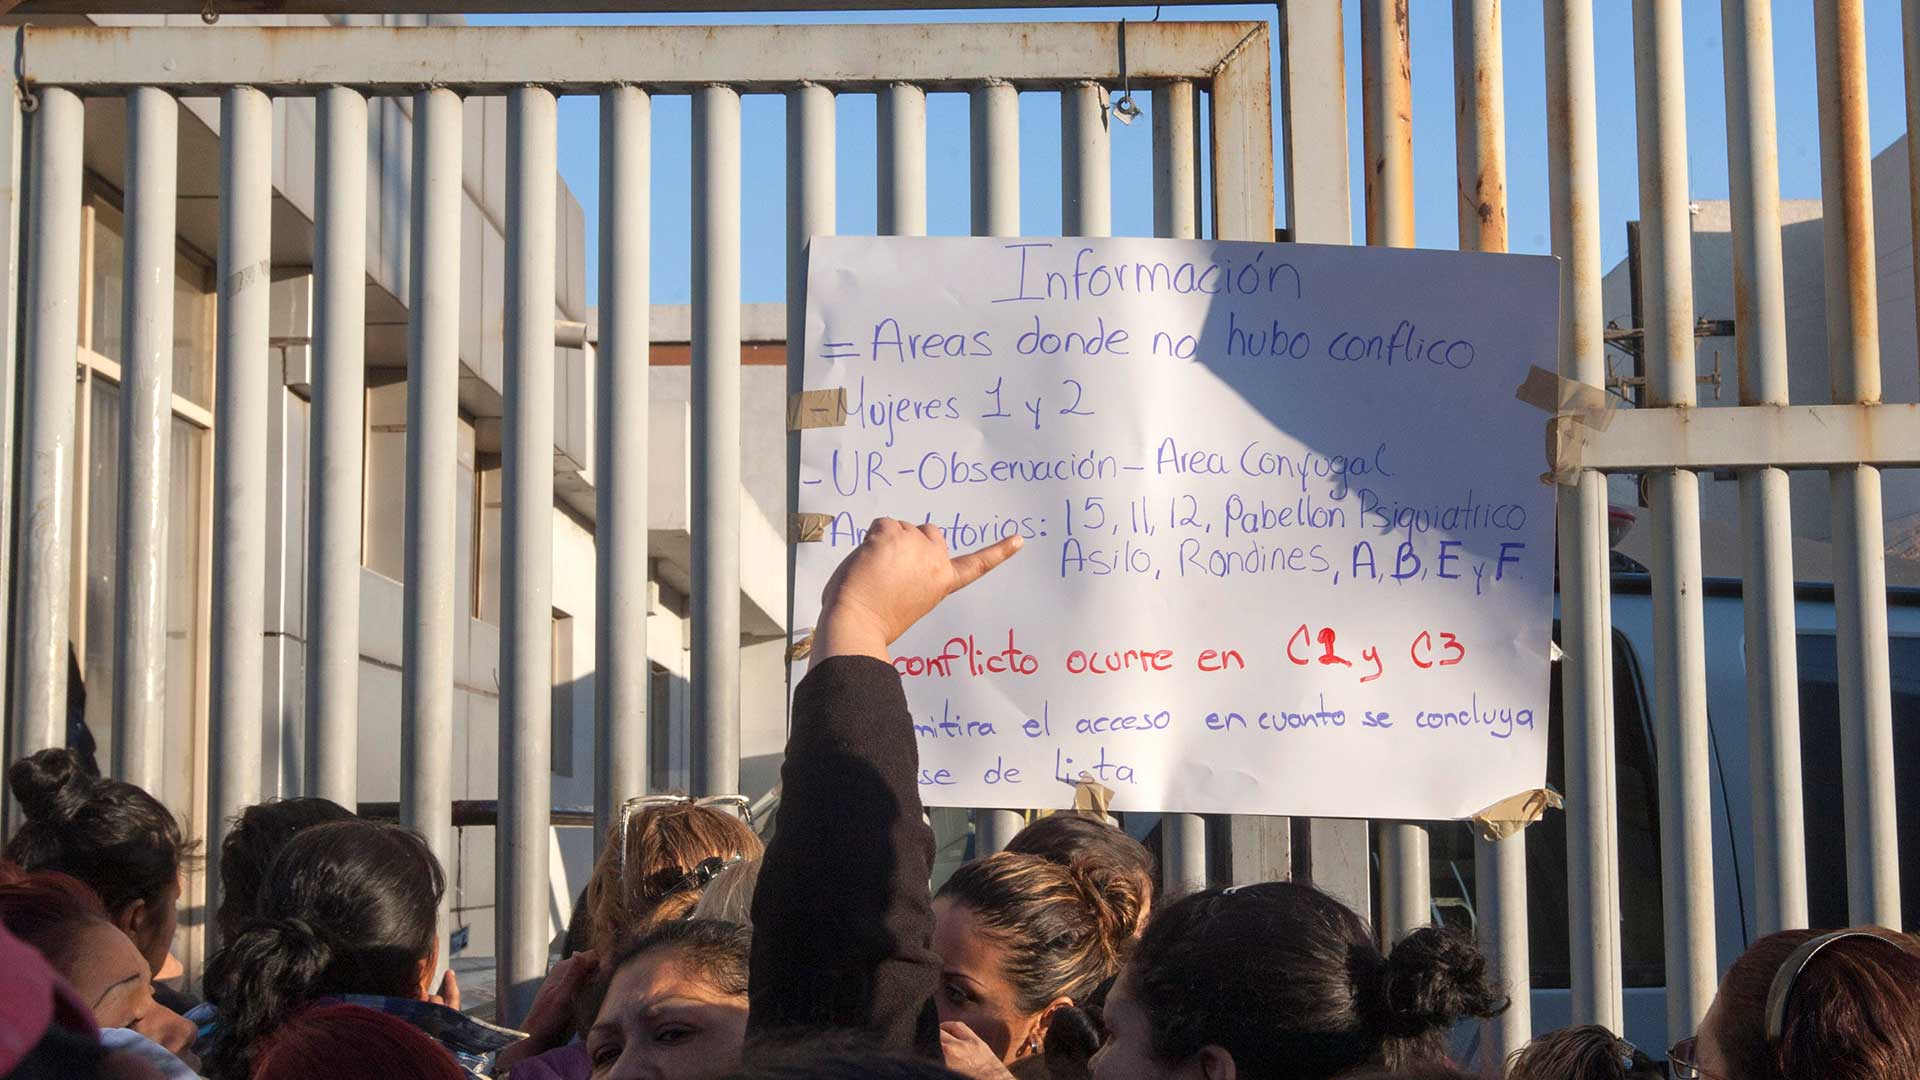 Información
= Areas donde no hubo conflico
- Mujeres 1 y 2
- UR - Observación - Area Conyugal
- : 15, 11, 12, Pabellon Psiquiatrico
Asilo, Rondines, A, B, E y F.
conflicto ocurre en C2 y C3
el acceso en cuanto se concluya
de lista.